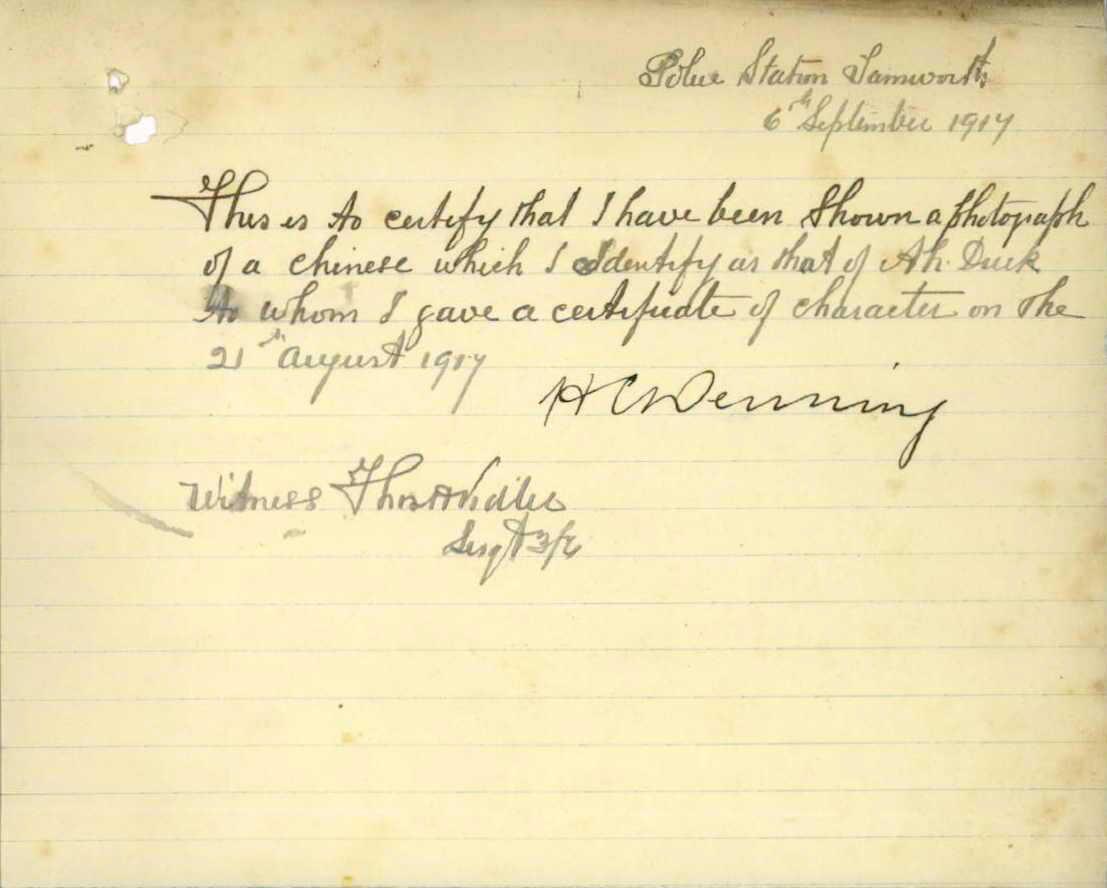 Police Station Tamworth
6th September 1917
This is to certify that I have been Shown a photograph
of a Chinese which I Identify as that of Ah. Duck
to whom I gave a certificate of character on the
21st August 1917
H C Wenning
Witness Thos
Sergt 3/c